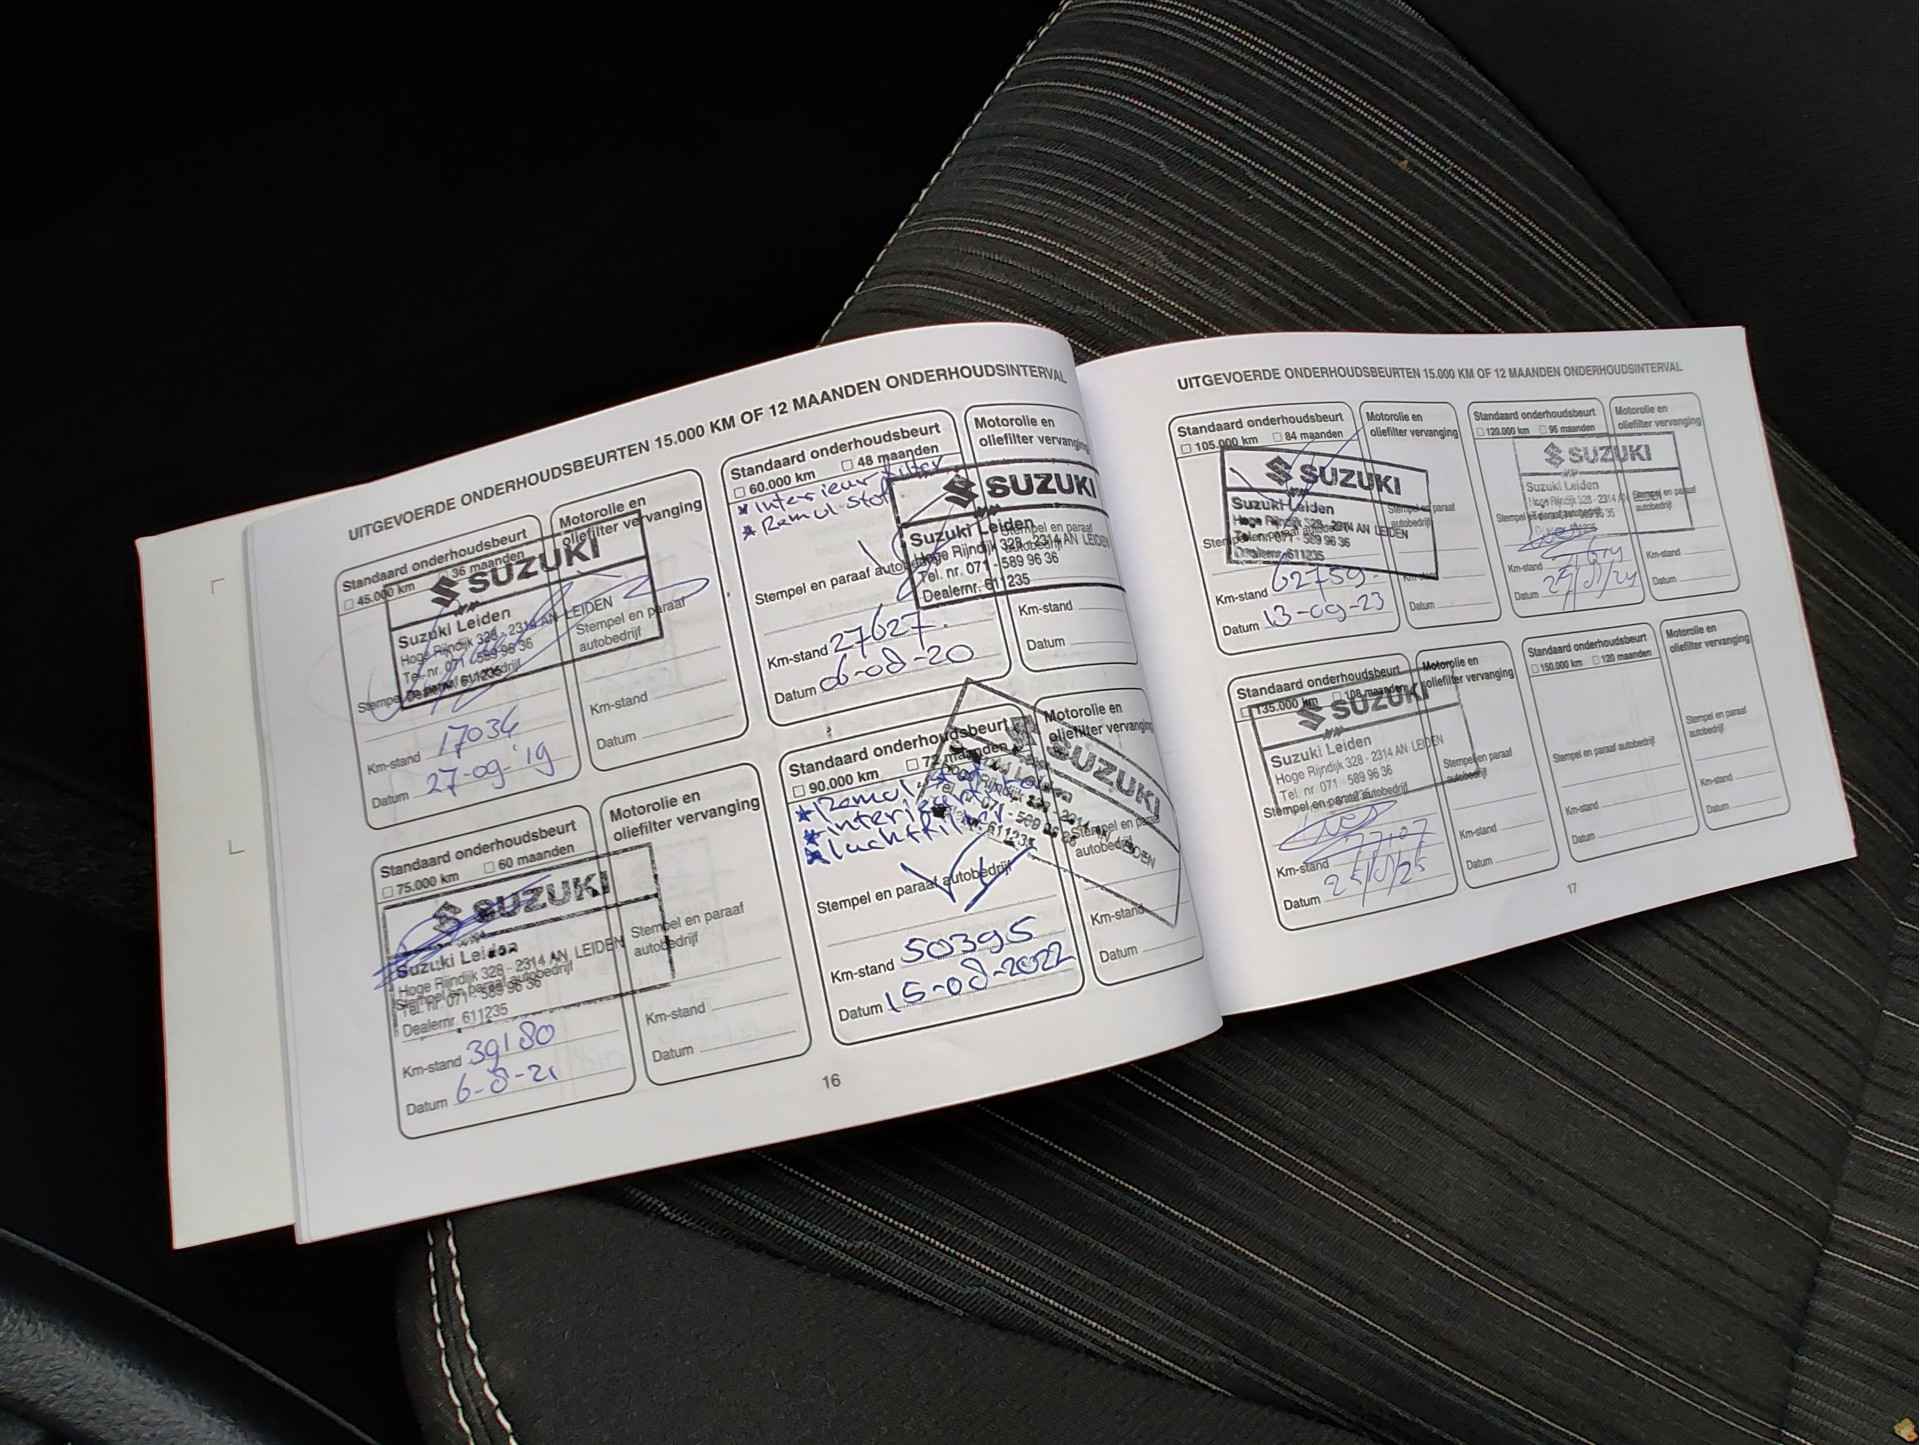 UITGEVOERDE ONDERHOUDSBEURTEN 15.000 KM OF 12 MAANDEN ONDERHOUDSINTERVAL
Standaard onderhoudsbeurt
45.000 km 36 maanden
Motorolie en
oliefilter vervanging
SUZUKI
Suzuki Leiden
Hoge Rijndijk 328 - 2314 AN LEIDEN
Tel. nr. 071 - 589 96 36
Dealernr. 611235
Stempel en paraaf autobedrijf
Km-stand 17034
Datum 27-09-'19
Stempel en paraaf
autobedrijf
Km-stand
Datum
Standaard onderhoudsbeurt
60.000 km 48 maanden
Motorolie en
oliefilter vervanging
* Interieurfilter
* Remvlstof
SUZUKI
Suzuki Leiden
Hoge Rijndijk 328 - 2314 AN LEIDEN
Tel. nr. 071 - 589 96 36
Dealernr. 611235
Stempel en paraaf autobedrijf
Km-stand 27627.
Datum 06-08-20
Stempel en paraaf
autobedrijf
Km-stand
Datum
Standaard onderhoudsbeurt
75.000 km 60 maanden
Motorolie en
oliefilter vervanging
SUZUKI
Suzuki Leiden
Hoge Rijndijk 328 - 2314 AN LEIDEN
Tel. nr. 071 - 589 96 36
Dealernr. 611235
Stempel en paraaf autobedrijf
Km-stand 39180
Datum 6-8-21
Stempel en paraaf
autobedrijf
Km-stand
Datum
Standaard onderhoudsbeurt
90.000 km 72 maanden
Motorolie en
oliefilter vervanging
* luchtfilter
SUZUKI
Stempel en paraaf autobedrijf
Km-stand 50395
Datum 15-08-2022
Stempel en paraaf
autobedrijf
Km-stand
Datum
16
UITGEVOERDE ONDERHOUDSBEURTEN 15.000 KM OF 12 MAANDEN ONDERHOUDSINTERVAL
Standaard onderhoudsbeurt
105.000 km 84 maanden
Motorolie en
oliefilter vervanging
SUZUKI
Suzuki Leiden
Hoge Rijndijk 328 - 2314 AN LEIDEN
Tel. nr. 071 - 589 96 36
Dealernr. 611235
Stempel en paraaf autobedrijf
Km-stand 62759-
Datum 13-09-23
Stempel en paraaf
autobedrijf
Km-stand
Datum
Standaard onderhoudsbeurt
120.000 km 96 maanden
Motorolie en
oliefilter vervanging
SUZUKI
Suzuki Leiden
Hoge Rijndijk 328 - 2314 AN
Stempel en paraaf autobedrijf
Km-stand
Datum
Stempel en paraaf
autobedrijf
Km-stand
Datum
Standaard onderhoudsbeurt
135.000 km 108 maanden
Motorolie en
oliefilter vervanging
SUZUKI
Suzuki Leiden
Hoge Rijndijk 328 - 2314 AN LEIDEN
Tel. nr. 071 - 589 96 36
Dealernr. 611235
Stempel en paraaf autobedrijf
Km-stand 77107
Datum
Stempel en paraaf
autobedrijf
Km-stand
Datum
Standaard onderhoudsbeurt
150.000 km 120 maanden
Motorolie en
oliefilter vervanging
Stempel en paraaf autobedrijf
Km-stand
Datum
Stempel en paraaf
autobedrijf
Km-stand
Datum
17